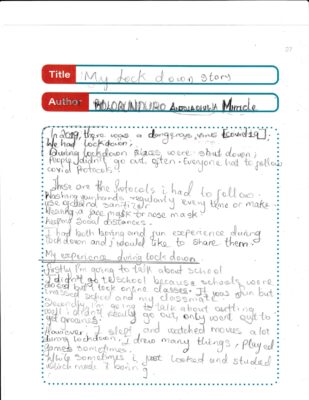 27
Title My lock down story
Author BOLORUNDURO Miracle
In 2019, there was a dangerous virus [Covid 19],
We had lockdown;
During lockdown places were shut down,
People didn't go out often. Everyone had to follow
covid Protocols.
These are the Protocols i had to follow.
Washing our hands regularly every time or make
use of hand sanitizer
Wearing a face mask or nose mask
Keeping Social distances.
I had both boring and fun experience during
lock down and i would like to share them.
My experience during lock down
Firstly I'm going to talk about school
I didn't go to school because schools were
closed but I took online classes. It was fun but
I missed school and my classmate.
Secondly, I'm going to talk about outing
well i didn't really go out, only went out to
get groceries.
However, I slept and watched movies a lot
during lockdown. I drew many things, Played
games sometimes.
While sometimes i just looked and studied
which made it boring.